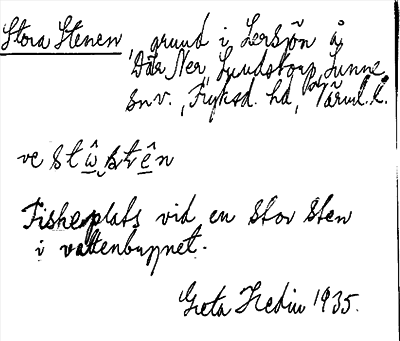 Stora Stenen, grund i Lersjön å
Där Ner, Lundstorp, Sunne
sn v., Fryksd. hd, Värml. l.
ve stω̂ stên
Fiskeplats vid en stor sten
i vattenbrynet.
Greta Hedin 1935.